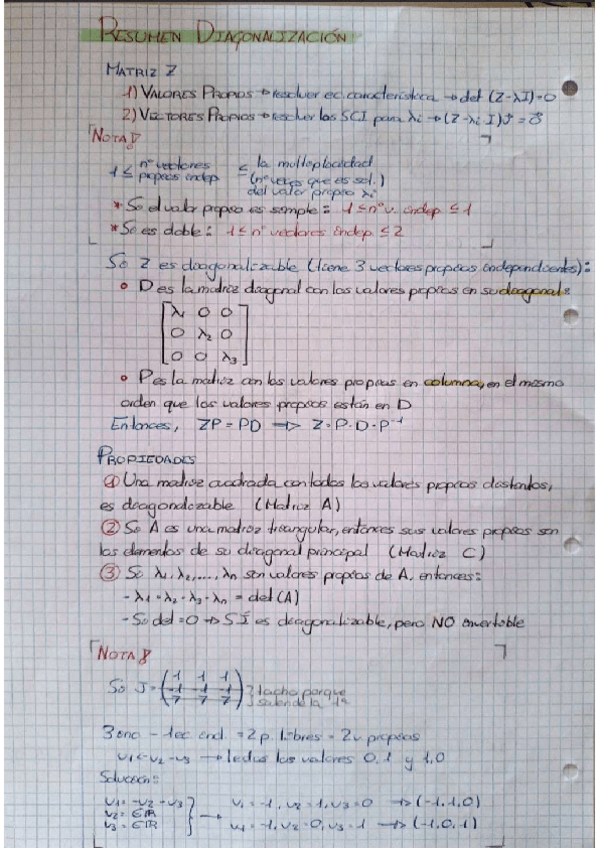 RESUMEN DIAGONALIZACIÓN
MATRIZ Z
1) VALORES PROPIOS → resolver ec. característica → det (Z-λI)=0
2) VECTORES PROPIOS → resolver los SCI para λi → (Z-λi I)v⃗ = 0⃗
NOTA
1 ≤ nº vectores propios indep ≤ la multiplicidad
(nº veces que es sol.)
del valor propio λi
* Si el valor propio es simple: 1 ≤ nº v. indep ≤ 1
* Si es doble: 1 ≤ nº vectores indep ≤ 2
Si Z es diagonalizable (tiene 3 vectores propios independientes):
• D es la matriz diagonal con los valores propios en su diagonal:
λ1 0 0
0 λ2 0
0 0 λ3
• P es la matriz con los valores propios en columna, en el mismo
orden que los valores propios están en D
Entonces, ZP = PD → Z = P·D·P⁻¹
PROPIEDADES
① Una matriz cuadrada con todos los valores propios distintos,
es diagonalizable (Matriz A)
② Si A es una matriz triangular, entonces sus valores propios son
los elementos de su diagonal principal (Matriz C)
③ Si λ1, λ2, ..., λn son valores propios de A, entonces:
- λ1 · λ2 · λ3 · λn = det (A)
- Si det = 0 → SÍ es diagonalizable, pero NO invertible
NOTA
Si J = 1 1 1
-1 -1 -1
7 7 7
tacho porque
salen de la 1ª
3 inc - 1 ec. ind. = 2 p. libres = 2 v. propios
v1 = -v2 - v3 → le dos los valores 0,1 y 1,0
Solución:
v1 = -v2 - v3
v2 = ∈ℝ
v3 = ∈ℝ
→ v1 = -1, v2 = 1, v3 = 0 → (-1,1,0)
v1 = -1, v2 = 0, v3 = 1 → (-1,0,1)